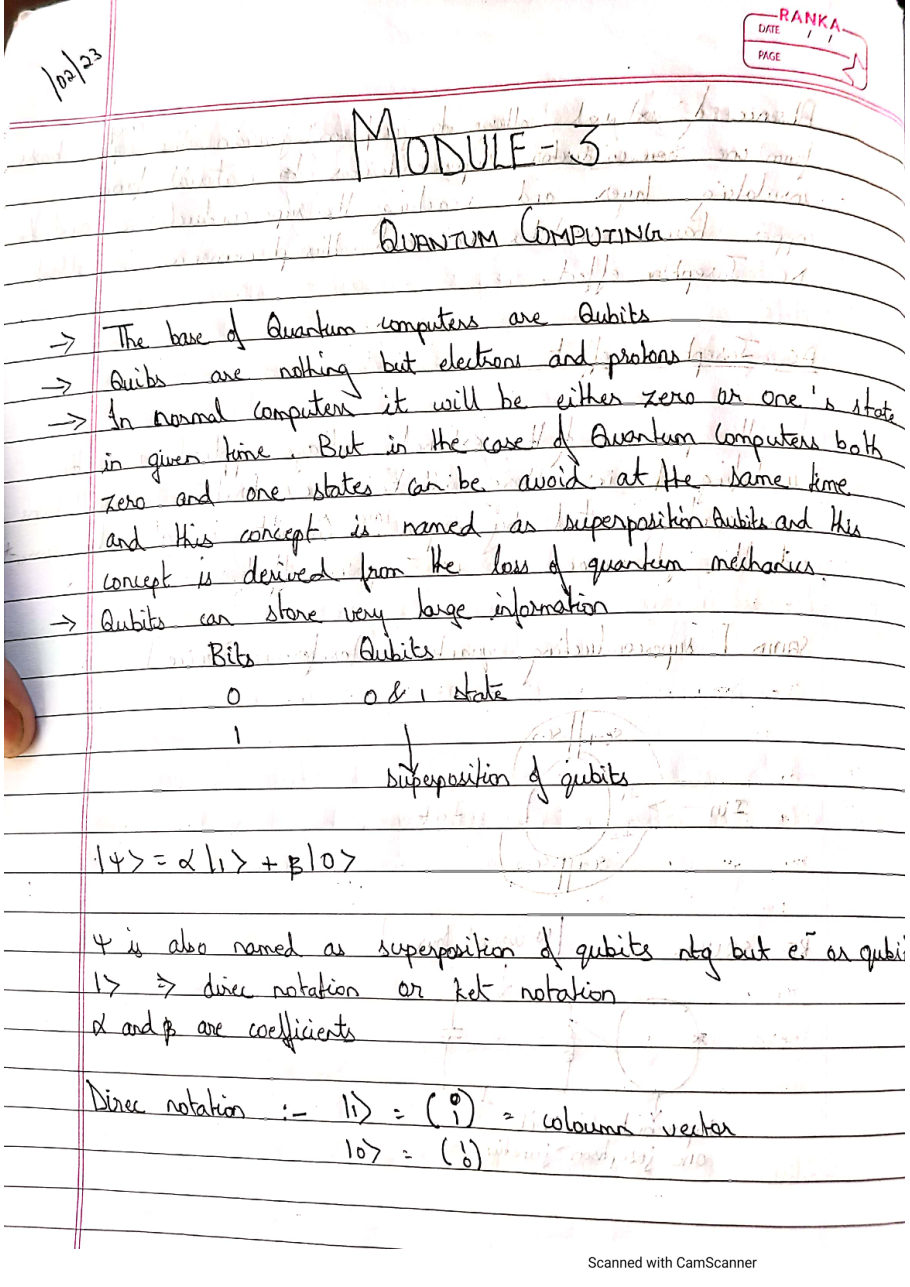 RANKA
DATE / /
PAGE
/02/23
MODULE-3
QUANTUM COMPUTING
→ The base of Quantum computers are Qubits
→ Quibs are nothing but electrons and protons
→ In normal computers it will be either zero or one's state
in given time. But in the case of Quantum Computers both
zero and one states can be avoid at the same time
and this concept is named as superposition Qubits and this
concept is derived from the loss of quantum mechanics.
→ Qubits can store very large information
Bits Qubits
0 0 & 1 state
1 ↓
superposition of qubits
|ψ> = α|1> + β|0>
ψ is also named as superposition of qubits ntg but e⁻ or qubi
|> ⇒ direc notation or ket notation
α and β are coefficients
Direc notation :- |1> = (0 1) = coloumn vector
|0> = (1 0)
Scanned with CamScanner